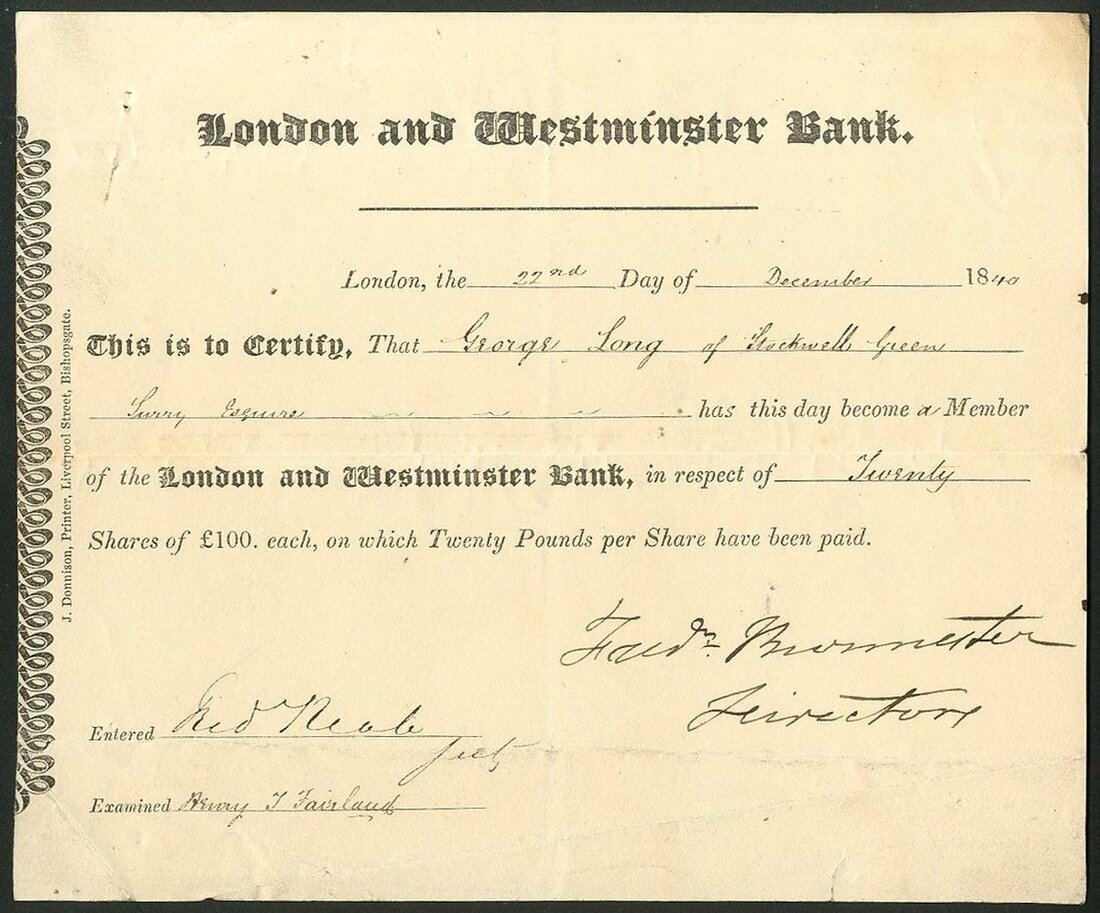 London and Westminster Bank.
London, the 22nd Day of December 1840
This is to Certify, That George Long of Stockwell Green
Surry Esquire has this day become a Member
of the London and Westminster Bank, in respect of Twenty
Shares of £100. each, on which Twenty Pounds per Share have been paid.
Director
Entered
Examined Henry T Fairland
J. Donnison, Printer, Liverpool Street, Bishopsgate.